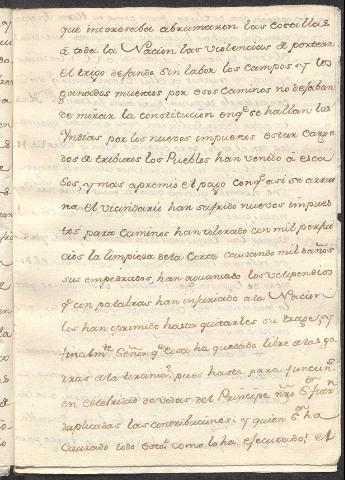 que incresaba abrumaron las costillas
á toda la Nacion las violencias de portear
el trigo dejando sin labor los campos y los
ganados muertos por esos caminos no dejaban
de mirar la constitucion en q.e se hallan las
Yndias por los nuevos impuestos estar carga
dos de tributos los Pueblos han venido á esca
sos, y mas apremio el pago con q.e asi se arrui
na el vicindario han sufrido nuevos impues
tos para caminos han tolerado con mil perjui
cios la limpiesa dela Corte causando mil daños
sus empedrados, han aguantado los vilipendios
q.e con palabras han injuriado ala Nacion
los han oprimido hasta quitarles su trage, y
finalm.te Señor q.e cosa ha quedado libre alas ga
rras ala tirania? pues hasta para funcion.s
en celebridad de vodas del Principe nrõ S.or fuer.n
duplicadas las contribuciones: y quien S.or ha
causado todo esto? como lo ha ejecutado? el